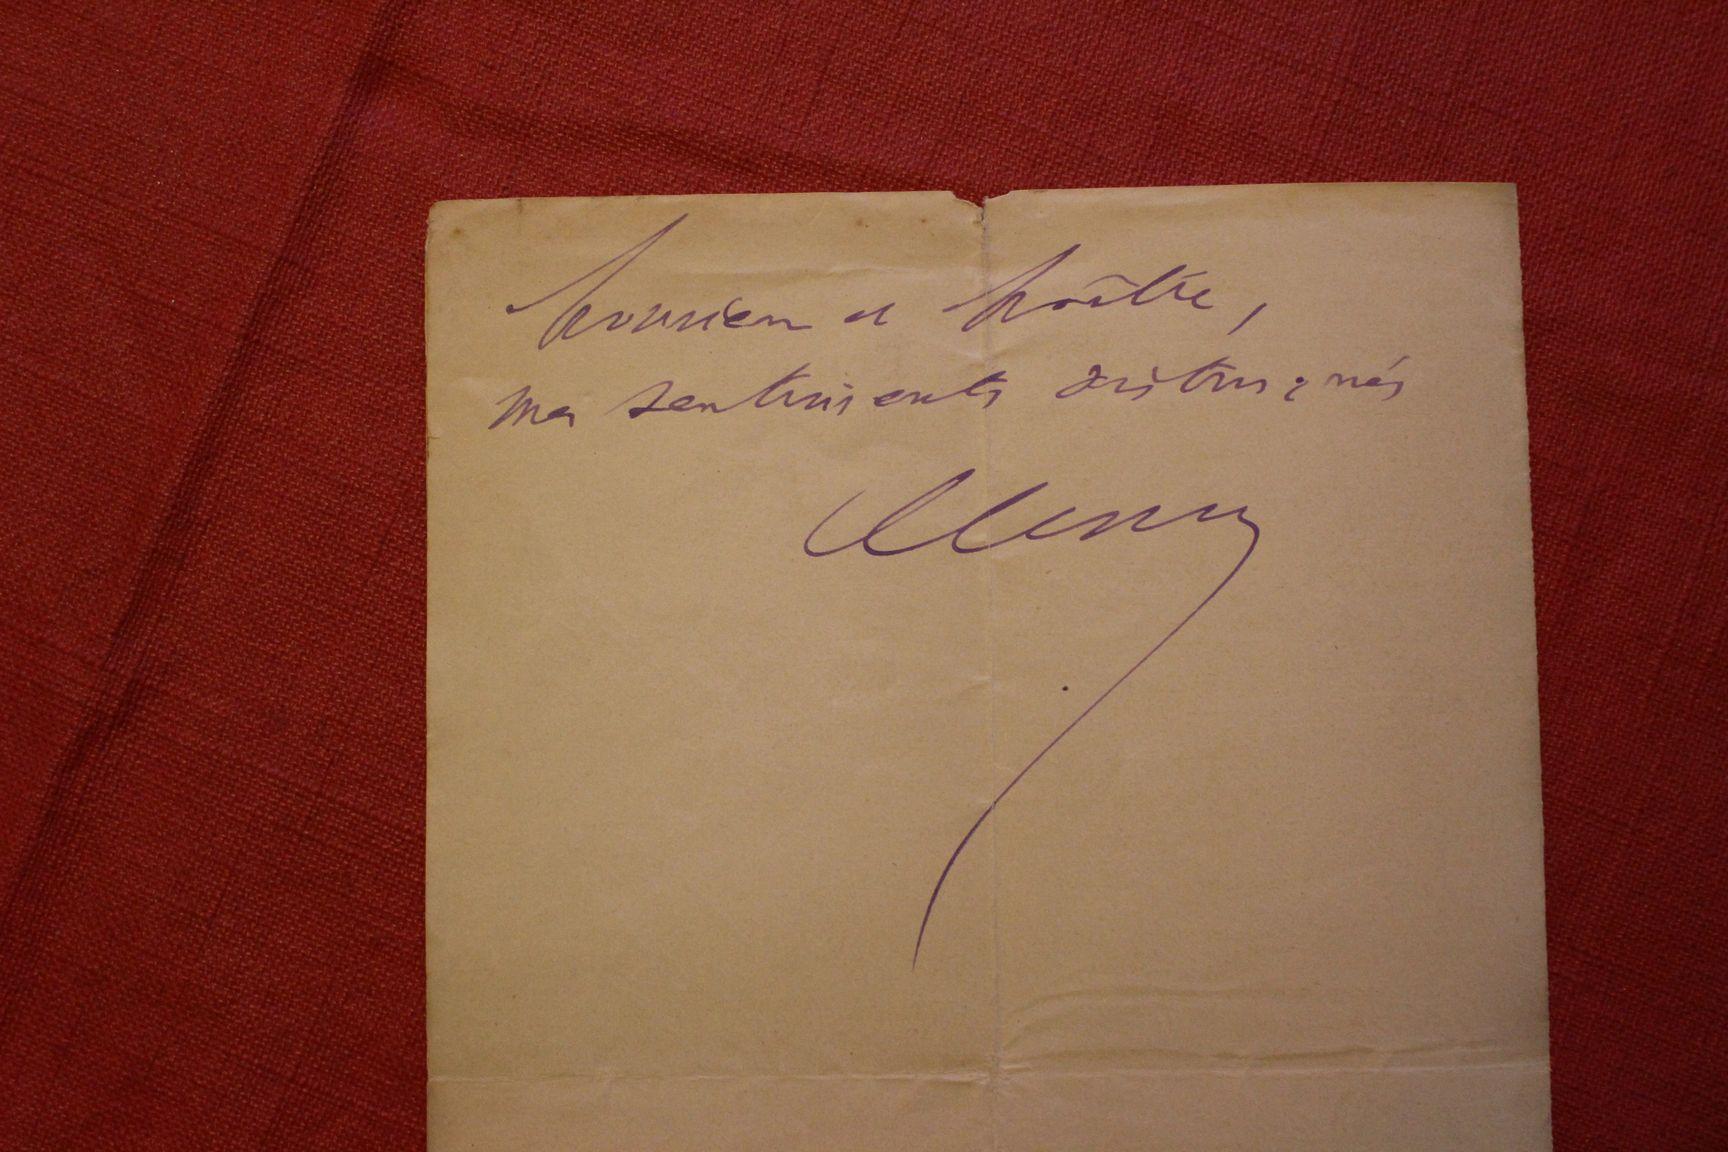 Monsieur et Maître,
mes sentiments distingués